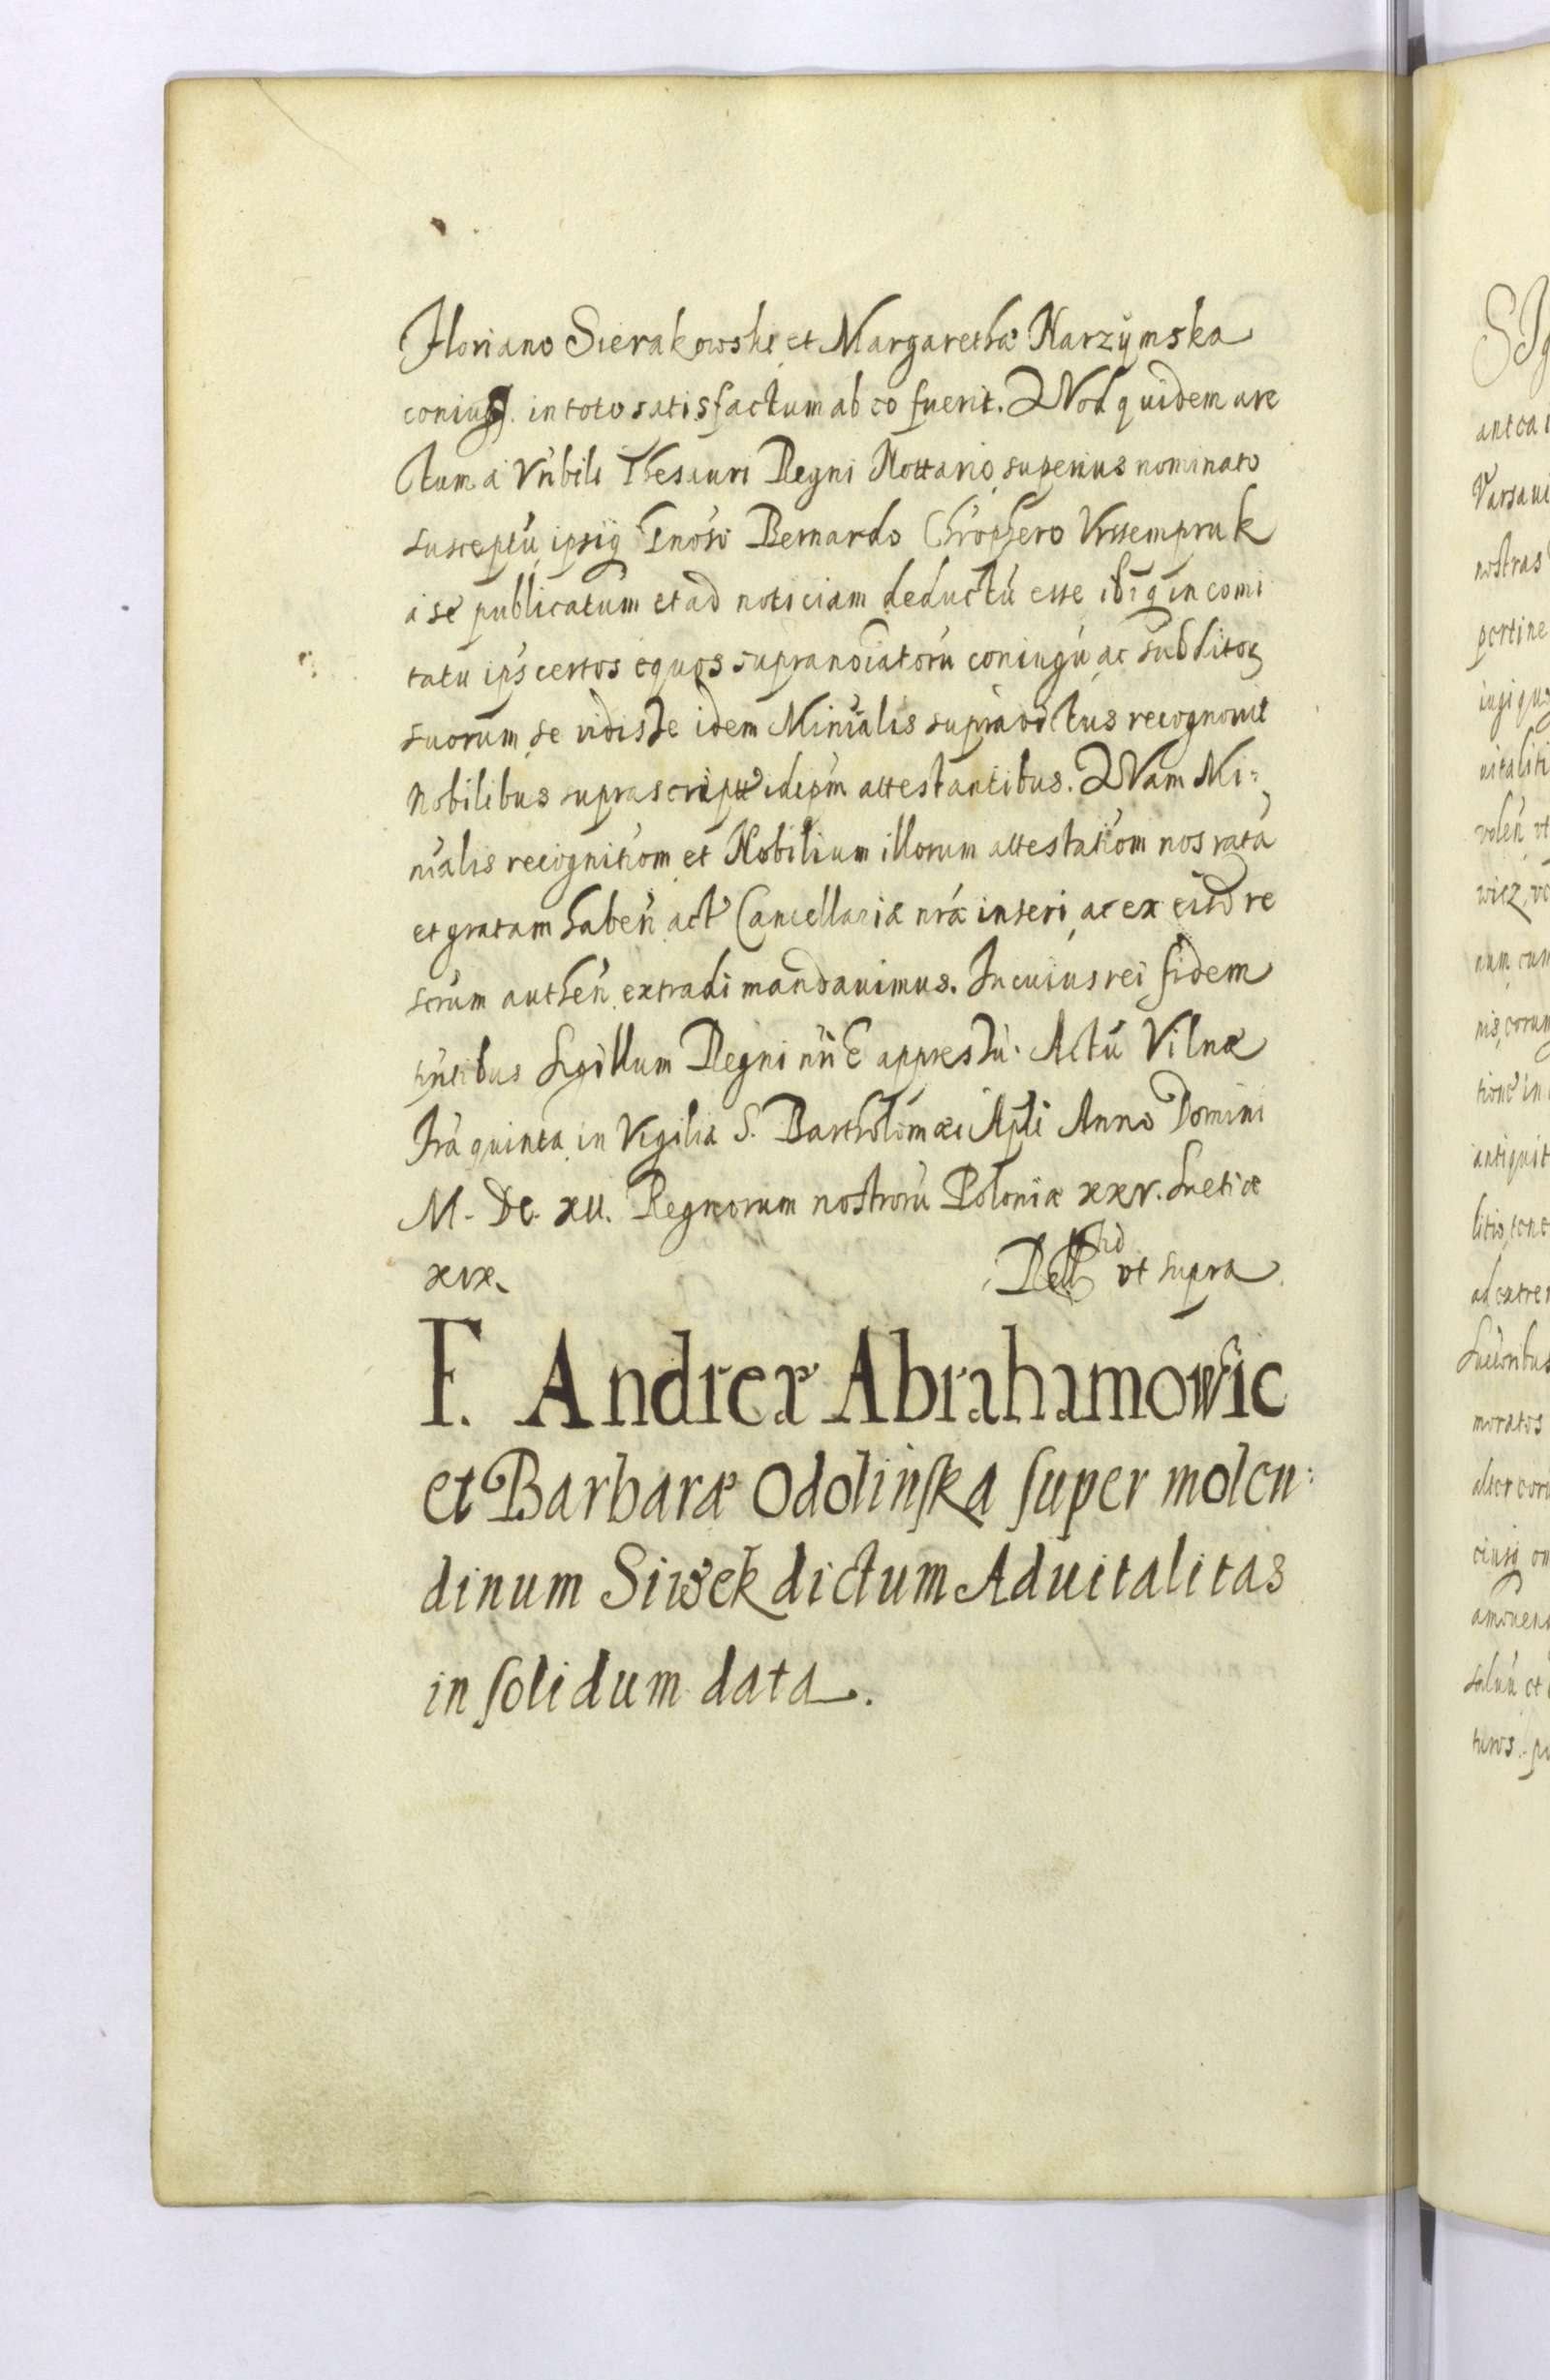 Floriano Sierakowski et Margaretha Narzÿmska
coniug. in toto satisfactum ab eo fuerit. QVod quidem are
stum a Vn̄bili Thesauri Regni Nottario superius nominato
susceptū ipsiq Gnōso Bernardo Chrōphero Vrssempruk
a se publicatum et ad noticiam deductū esse ibiq in comi
tatu ips certos equos supranoīatorū coniugū ac subditor
suorum se vidisse idem Minīalis supradictus recognovit
Nobilibus suprascriptis idipm̄ attestantibus. QVam Mi:
nīalis recognitiōm et Nobilium illorum attestatiōm nos ratā
et gratam haben̄ act Cancellariæ nrā inseri, ac ex eisd re
scrūm authen̄ extradi mandavimus. In cuius rei fidem
pn̄tibus Sigillum Regni nr̄i E appressū. Actū Vilnæ
Frā quinta in Vigilia S. Bartholomæi Apli Anno Domini
M. DC. XII. Regnorum nostrorū Poloniæ XXV. Suetiæ
XIX.
Rell ut supra
F. Andreæ Abrahamowic
et Barbaræ Odolinska super molen:
dinum Siwek dictum Aduitalitas
in solidum data.
antea
Varsavi
nostras
pertine
vitaliti
wicz
num cum
antiquit
ad extre
moratos